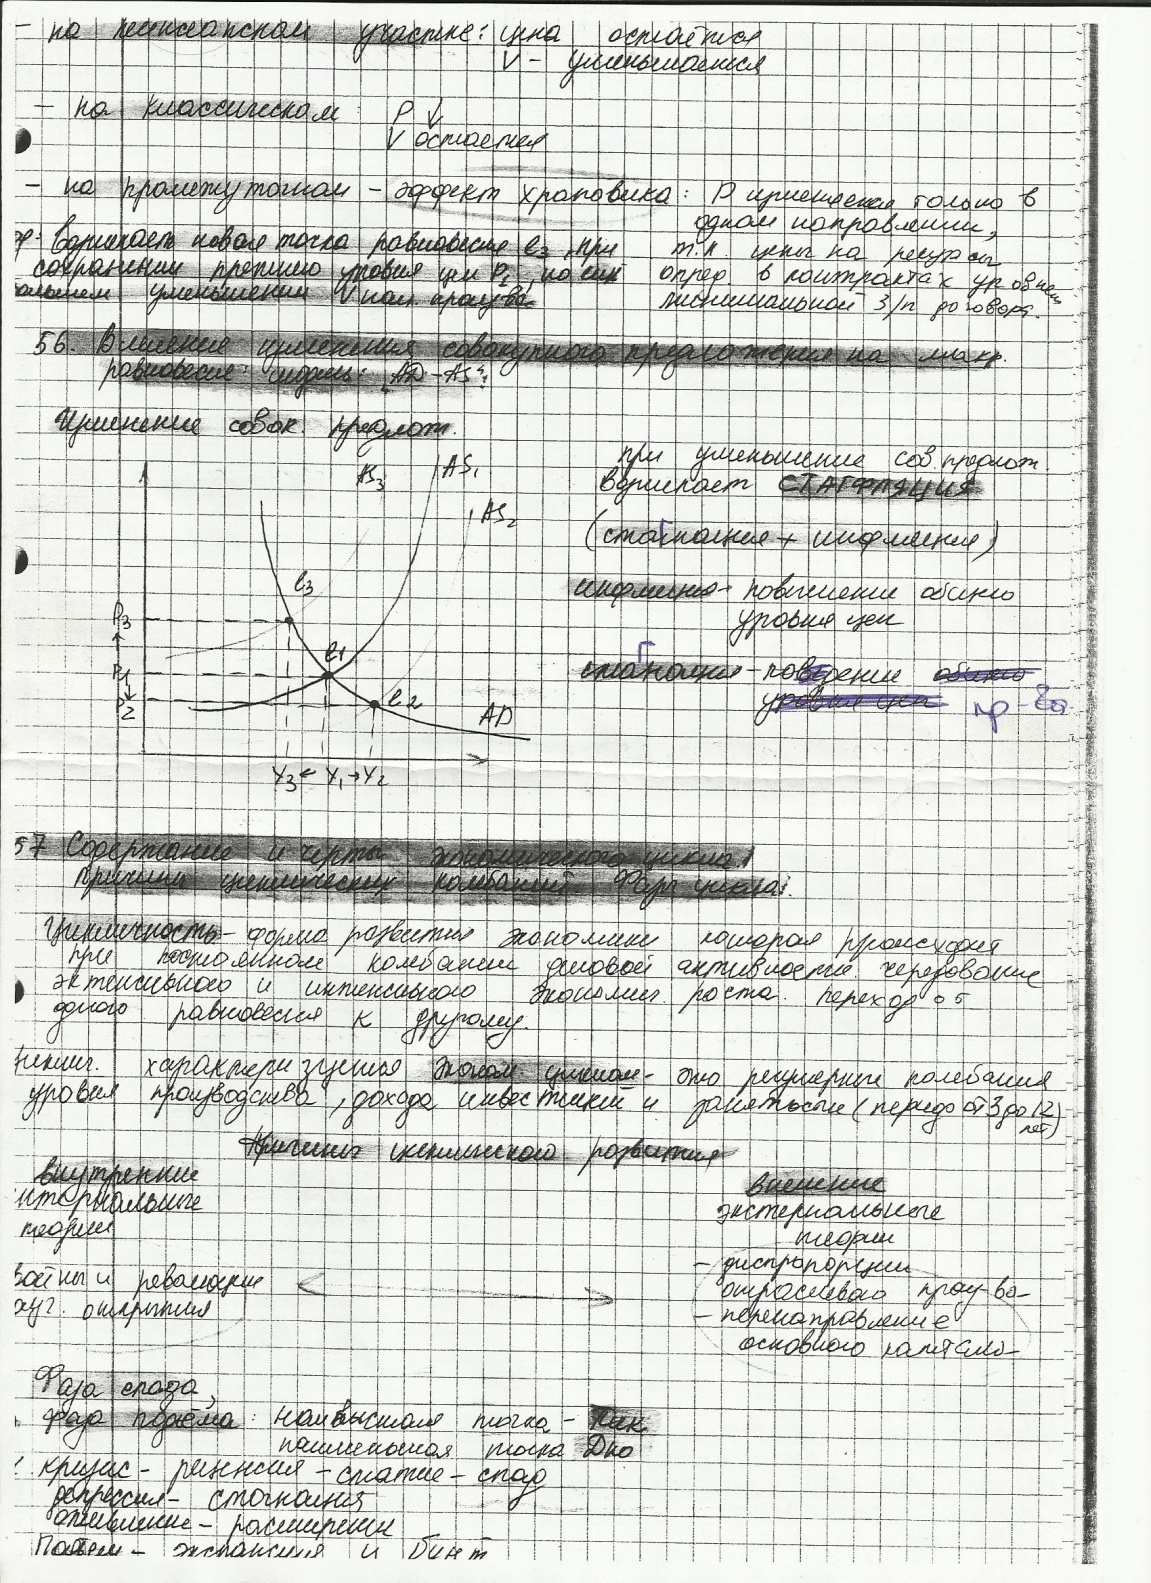 - на кейнсианском участке: цена остаётся
V - уменьшается
- на классическом P ↓
V остается
- на промежуточном - эффект храповика: P изменяется только в
одном направлении,
возникает новая точка равновесия e3 при
т.к. цены на ресурсы
сохранении прежнего уровня цен P2, но
опред в контрактах уровнем
уменьшении V нац. произ-ва
минимальной з/п договор.
56. Влияние изменения совокупного предложения на макр.
равновесие: модель: "AD-AS"
Изменение совок. предлож.
при уменьшение сов. предлож.
возникает СТАГФЛЯЦИЯ
(стагнация + инфляция)
инфляция - повышение общего
уровня цен
стагнация - поведение общего
уровня цен пр-ва
AS3 AS1
AS2
e3
P3
e1
P1
P2
e2
AD
Y3 ← Y1 → Y2
57 Содержание и черты экономического цикла.
Причины циклических колебаний. Фазы цикла.
Цикличность - форма развития экономики которая происходит
при постоянном колебании деловой активности. чередование
экстенсивного и интенсивного экономич. роста. переход от
одного равновесия к другому.
характеризуется эконом. циклом - это регулярные колебания
уровня производства, дохода инвестиций и занятости (период от 3 до 12
лет)
Причины циклического развития
внутренние
внешние
интернальные
экстернальные
теории
теории
войны и революции
- диспропорции
отраслевого произ-ва
открытия
- перенаправление
основного капитала
Фаза спада,
фаза подъёма: наивысшая точка - Пик
наименьшая точка Дно
кризис - рецессия - сжатие - спад
депрессия - стагнация
оживление - расширение
Подъем - экспансия и бум